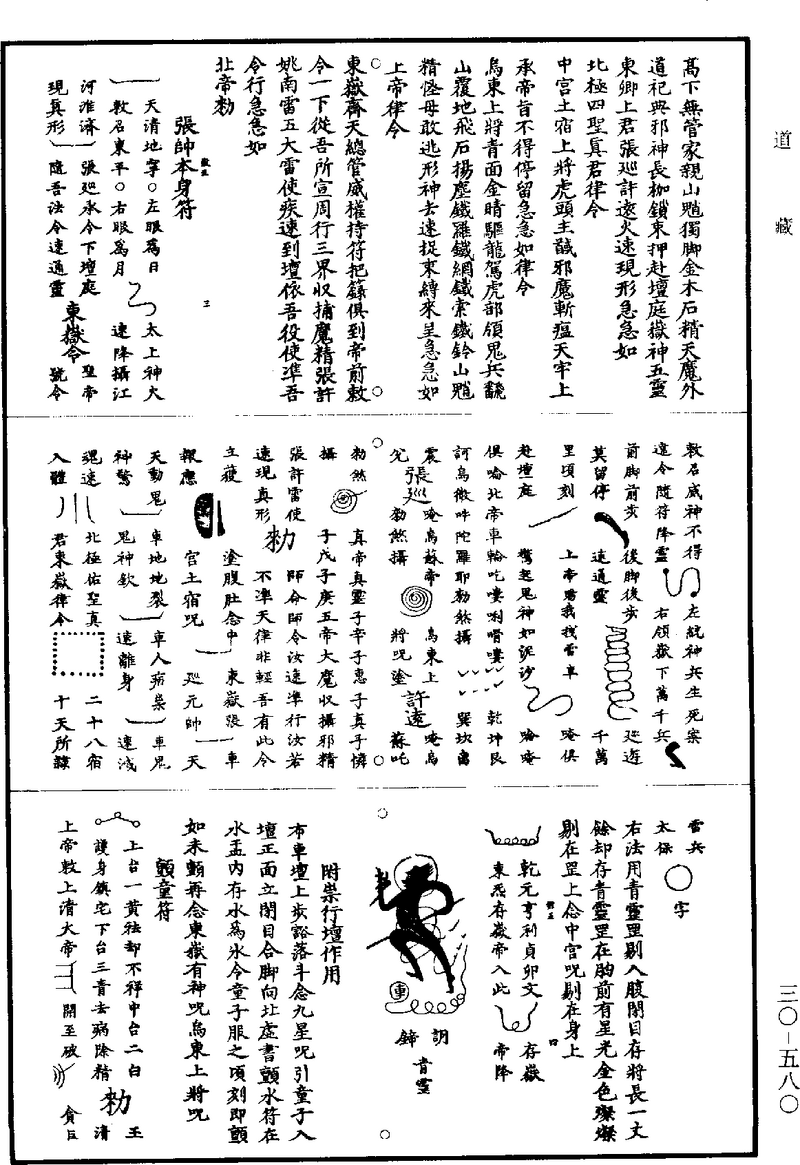 道藏
三〇—五八〇
高下無管家親山魈獨脚金木石精天魔外
道祀典邪神長枷鎖束押赴壇庭嶽神五靈
東卿上君張巡許遠火速現形急急如
北極四聖真君律令
中宮土宿上將虎頭主馘邪魔斬瘟天牢上
承帝旨不得停留急急如律令
烏東上將青面金睛驅龍駕虎部領鬼兵翻
山覆地飛石揚塵鐵羅鐵網鐵索鐵鈴山魈
精怪毋敢逃形神去速捉束縛來呈急急如
上帝律令
東嶽齋天總管威權持符把籙俱到帝前敕
令一下從吾所宣周行三界收捕魔精張許
姚南雷五大雷使疾速到壇依吾役使準吾
令行急急如
北帝勑
張帥本身符
三
天清地寧○左眼為日 太上神大
敕召東平○右眼為月 速降攝江
河淮濟 張巡承令下壇庭 聖帝
現真形 隨吾法令速通靈 東嶽令 號令
敕召威神不得 左統神兵生死案
違令隨符降靈 右領嶽下萬千兵
前脚前步 後脚後步 巡遊
莫留停 速通靈 千萬
里頃刻 上帝賜我捉雷車 唵俱
赴壇庭 驚起鬼神如泥沙 唅唵
俱唅北帝車輪吃嘍唎嚼嘍 乾坤艮
訶烏微吽陀羅耶勑煞攝 巽坎离
震 唵烏蘇帝 烏東上 唵烏
兌 張巡 勑煞攝 將呪塗 許遠 蘇吒
勑煞 真帝真靈子辛子惠子真子憐
攝 子戊子庚五帝大魔收攝邪精
張許雷使 師命師令汝速準行汝若
速現真形 勑 不準天律非輕吾有此令
立葭 塗腹肚念中 東嶽張 車
報應 宮土宿呪 巡元帥 天
天動鬼 車地地裂 車人病祟 車鬼
神驚 鬼神欽 速離身 速滅
魂速 北極佑聖真 二十八宿
入體 君東嶽律令 十天所隸
雷兵
太保 字
右法用青靈罡剔入腹閉目存將長一丈
餘却存青靈罡在胸前有星光金色燦燦
剔在罡上念中宮呪剔在身上
乾元亨利貞卯文 存嶽
東炁存嶽帝入此 帝降
車
鍗
青靈
附祟行壇作用
布車壇上步豁落斗念九星呪引童子入
壇正面立閉目合脚向北虛書顫水符在
水盂內存水為氷令童子服之頃刻即顫
如未顫再念東嶽有神呪烏東上將呪
顫童符
上台一黃祛却不祥中台二白 王
護身鎮宅下台三青去病除精 勑 清
上帝敕上清大帝 開至破 貪巨